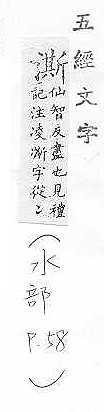 五經文字
澌仙智反盡也見禮
記注凌澌字從冫
(水部 P.58)